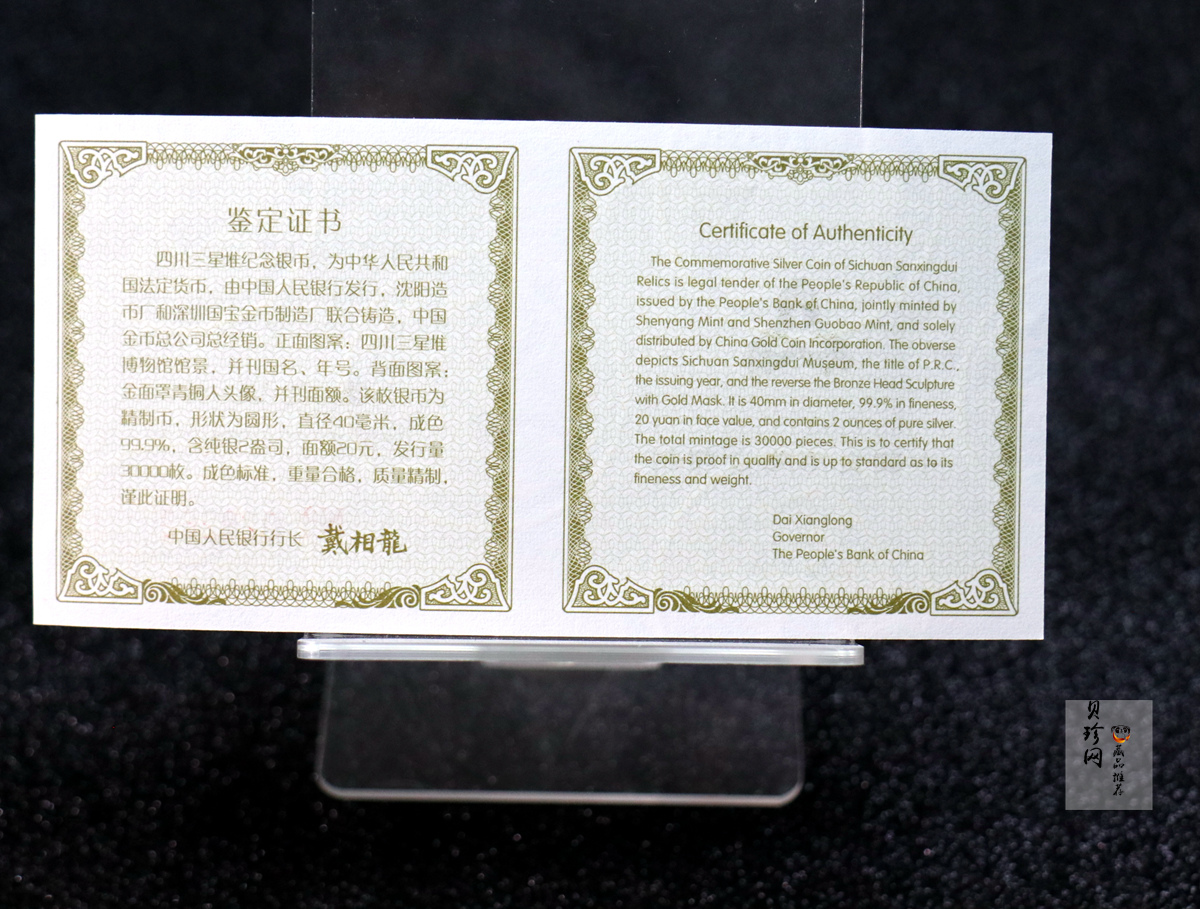 鉴定证书
四川三星堆纪念银币，为中华人民共和
国法定货币，由中国人民银行发行，沈阳造
币厂和深圳国宝金币制造厂联合铸造，中国
金币总公司总经销。正面图案：四川三星堆
博物馆馆景，并刊国名、年号。背面图案：
金面罩青铜人头像，并刊面额。该枚银币为
精制币，形状为圆形，直径40毫米，成色
99.9%，含纯银2盎司，面额20元，发行量
30000枚。成色标准，重量合格，质量精制，
谨此证明。
中国人民银行行长 戴相龍
Certificate of Authenticity
The Commemorative Silver Coin of Sichuan Sanxingdui
Relics is legal tender of the People's Republic of China,
issued by the People's Bank of China, jointly minted by
Shenyang Mint and Shenzhen Guobao Mint, and solely
distributed by China Gold Coin Incorporation. The obverse
depicts Sichuan Sanxingdui Museum, the title of P.R.C.,
the issuing year, and the reverse the Bronze Head Sculpture
with Gold Mask. It is 40mm in diameter, 99.9% in fineness,
20 yuan in face value, and contains 2 ounces of pure silver.
The total mintage is 30000 pieces. This is to certify that
the coin is proof in quality and is up to standard as to its
fineness and weight.
Dai Xianglong
Governor
The People's Bank of China
贝珍网
藏品推荐